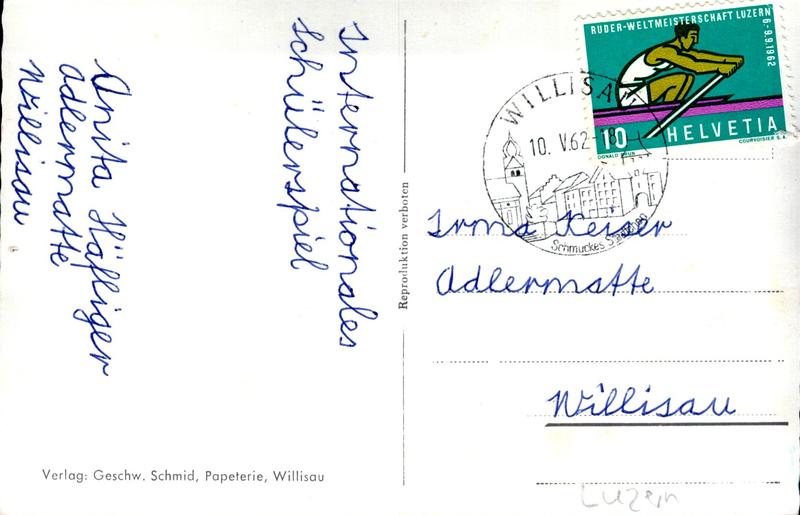 Anita Häfliger
Adlermatte
Willisau
Internationales
Schülerspiel
Verlag: Geschw. Schmid, Papeterie, Willisau
Reproduktion verboten
RUDER-WELTMEISTERSCHAFT LUZERN 6-9.9.1962
10 HELVETIA
COURVOISIER S.A.
WILLISAU
10. V. 62-18
Irma Keiser
Adlermatte
Willisau
Luzern